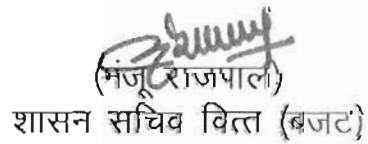 (मंजू राजपाल)
शासन सचिव वित्त (बजट)